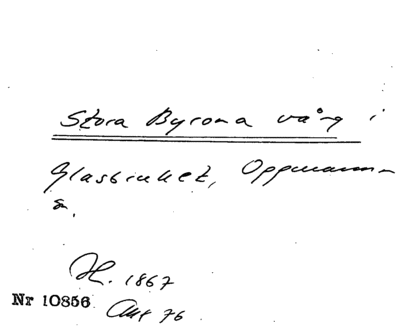 Stora Byrona väg i
Glasbruket, Oppmanna
s.
H. 1867
Nr 10856
Aug 76